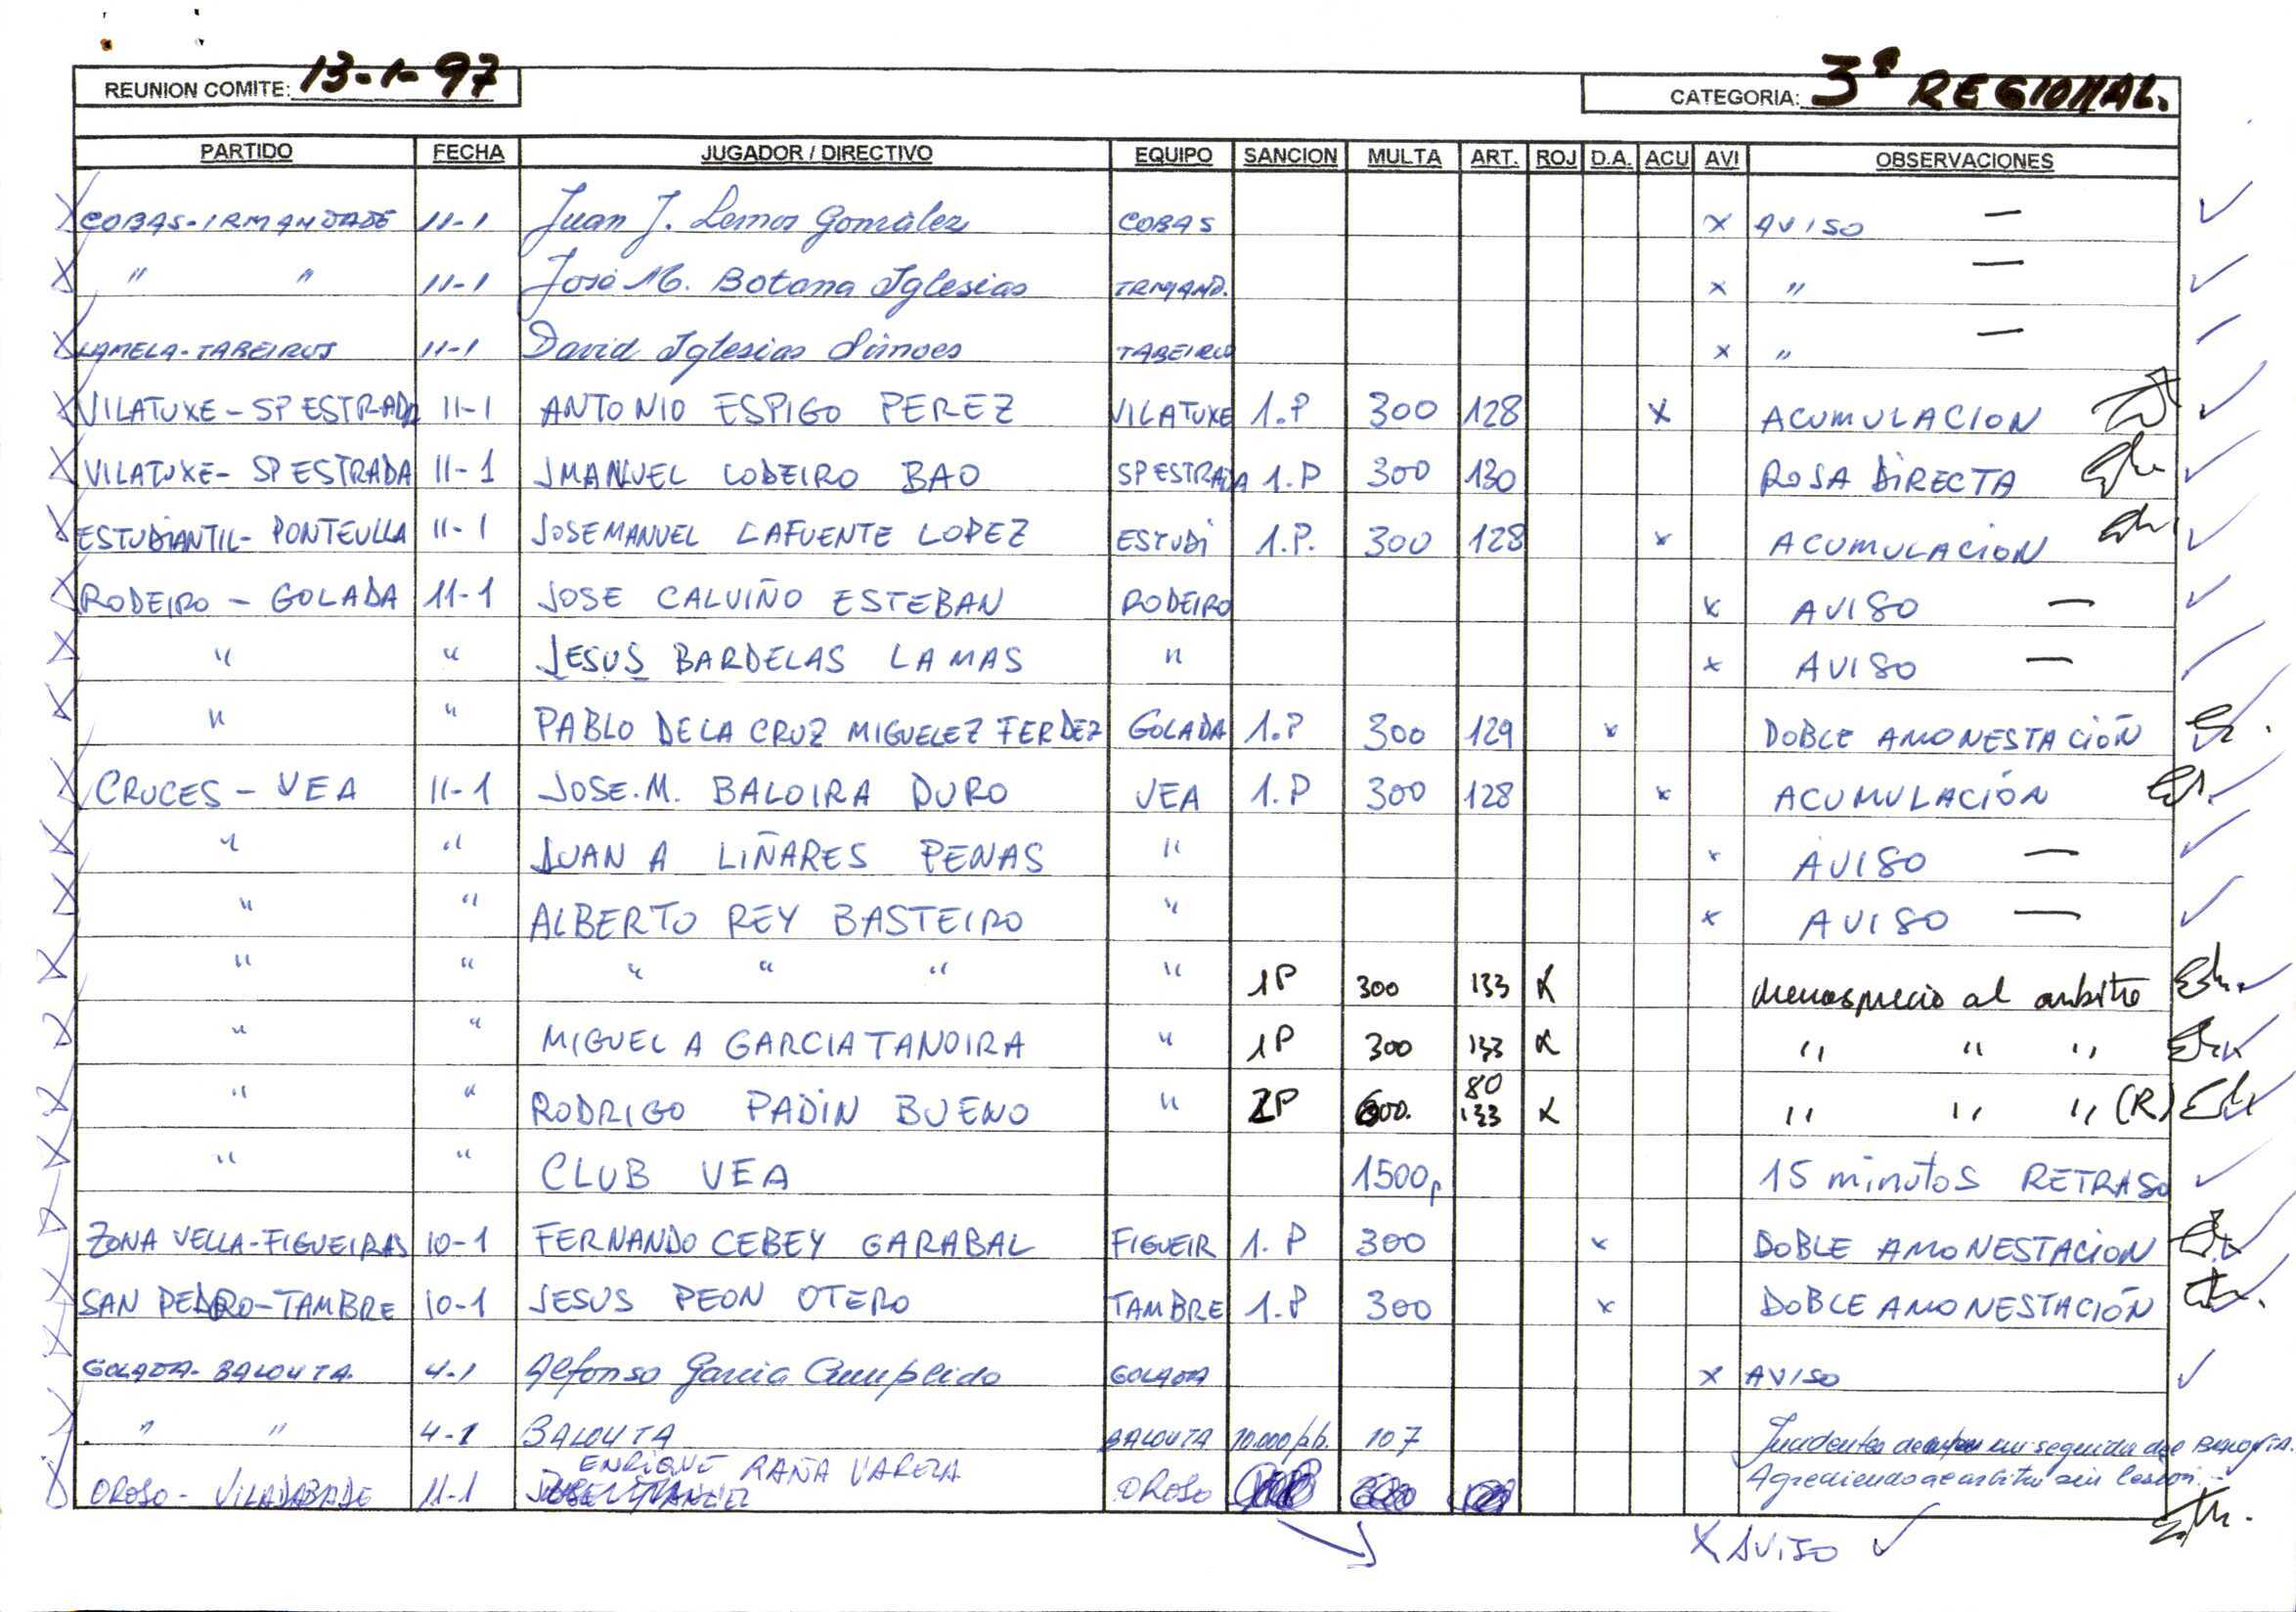 REUNION COMITE: 13-1-97 CATEGORIA: 3ª REGIONAL.
PARTIDO FECHA JUGADOR / DIRECTIVO EQUIPO SANCION MULTA ART. ROJ D.A. ACU AVI OBSERVACIONES
COBAS-IRMANDADE 11-1 Juan J. Lemos González COBAS x AVISO —
" " 11-1 José M. Botana Iglesias IRMAND. x " —
LAMELA-TABEIROS 11-1 David Iglesias Simoes TABEIROS x " —
VILATUXE-SP ESTRADA 11-1 ANTONIO ESPIGO PEREZ VILATUXE 1.P 300 128 x ACUMULACION
VILATUXE-SP ESTRADA 11-1 JMANUEL LODEIRO BAO SP ESTRADA 1.P 300 130 ROJA DIRECTA
ESTUDIANTIL-PONTEULLA 11-1 JOSE MANUEL LAFUENTE LOPEZ ESTUDI 1.P. 300 128 x ACUMULACION
RODEIRO - GOLADA 11-1 JOSE CALVIÑO ESTEBAN RODEIRO x AVISO —
" " JESUS BARDELAS LAMAS " x AVISO —
" " PABLO DE LA CRUZ MIGUELEZ FERDEZ GOLADA 1.P 300 129 x DOBLE AMONESTACIÓN
CRUCES - VEA 11-1 JOSE.M. BALOIRA DURO VEA 1.P 300 128 x ACUMULACIÓN
" " JUAN A LIÑARES PENAS " x AVISO —
" " ALBERTO REY BASTEIRO " x AVISO —
" " " " " " 1P 300 133 x menosprecio al arbitro
" " MIGUEL A GARCIA TANOIRA " 1P 300 133 x " " "
" " RODRIGO PADIN BUENO " 2P 600. 80 133 x " " " (R)
" " CLUB VEA 1500p 15 minutos RETRASO
ZONA VELLA-FIGUEIRAS 10-1 FERNANDO CEBEY GARABAL FIGUEIR 1.P 300 x DOBLE AMONESTACION
SAN PEDRO-TAMBRE 10-1 JESUS PEON OTERO TAMBRE 1.P 300 x DOBLE AMONESTACIÓN
GOLADA-BALOUTA 4-1 Alfonso Garcia Cumplido GOLADA x AVISO
" " 4-1 BALOUTA BALOUTA 10.000 107 Incidentes
Agrediendo al arbitro sin lesion.
OROSO - VILADABADE 11-1 ENRIQUE RAÑA VARELA OROSO
X AVISO